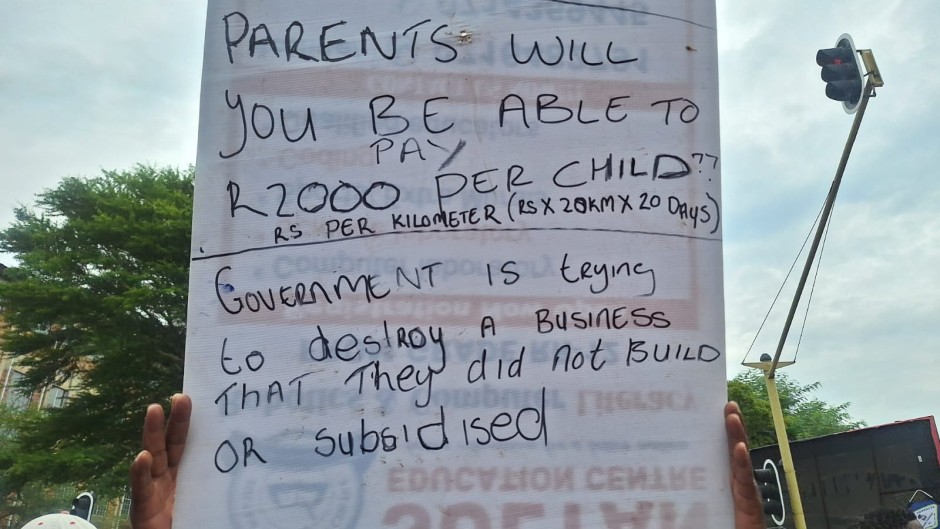 PARENTS WILL
YOU BE ABLE TO
PAY
R2000 PER CHILD??
R5 PER KILOMETER (R5 X 20KM X 20 DAYS)
GOVERNMENT IS trying
to destroy A BUSINESS
THAT They did not BUILD
OR subsidised
Computer
Computer Literacy
EDUCATION CENTRE
SULTAN